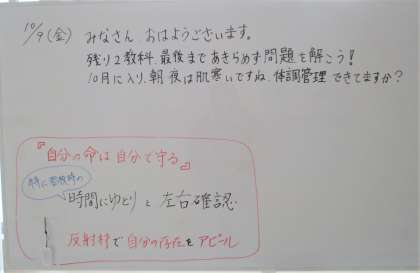 10/9(金) みなさん おはようございます。
残り2教科、最後まであきらめず問題を解こう!
10月に入り、朝夜は肌寒いですね、体調管理できてますか?
『自分の命は自分で守る』
特に登校時の
時間にゆとり と 左右確認
反射材で自分の存在をアピール